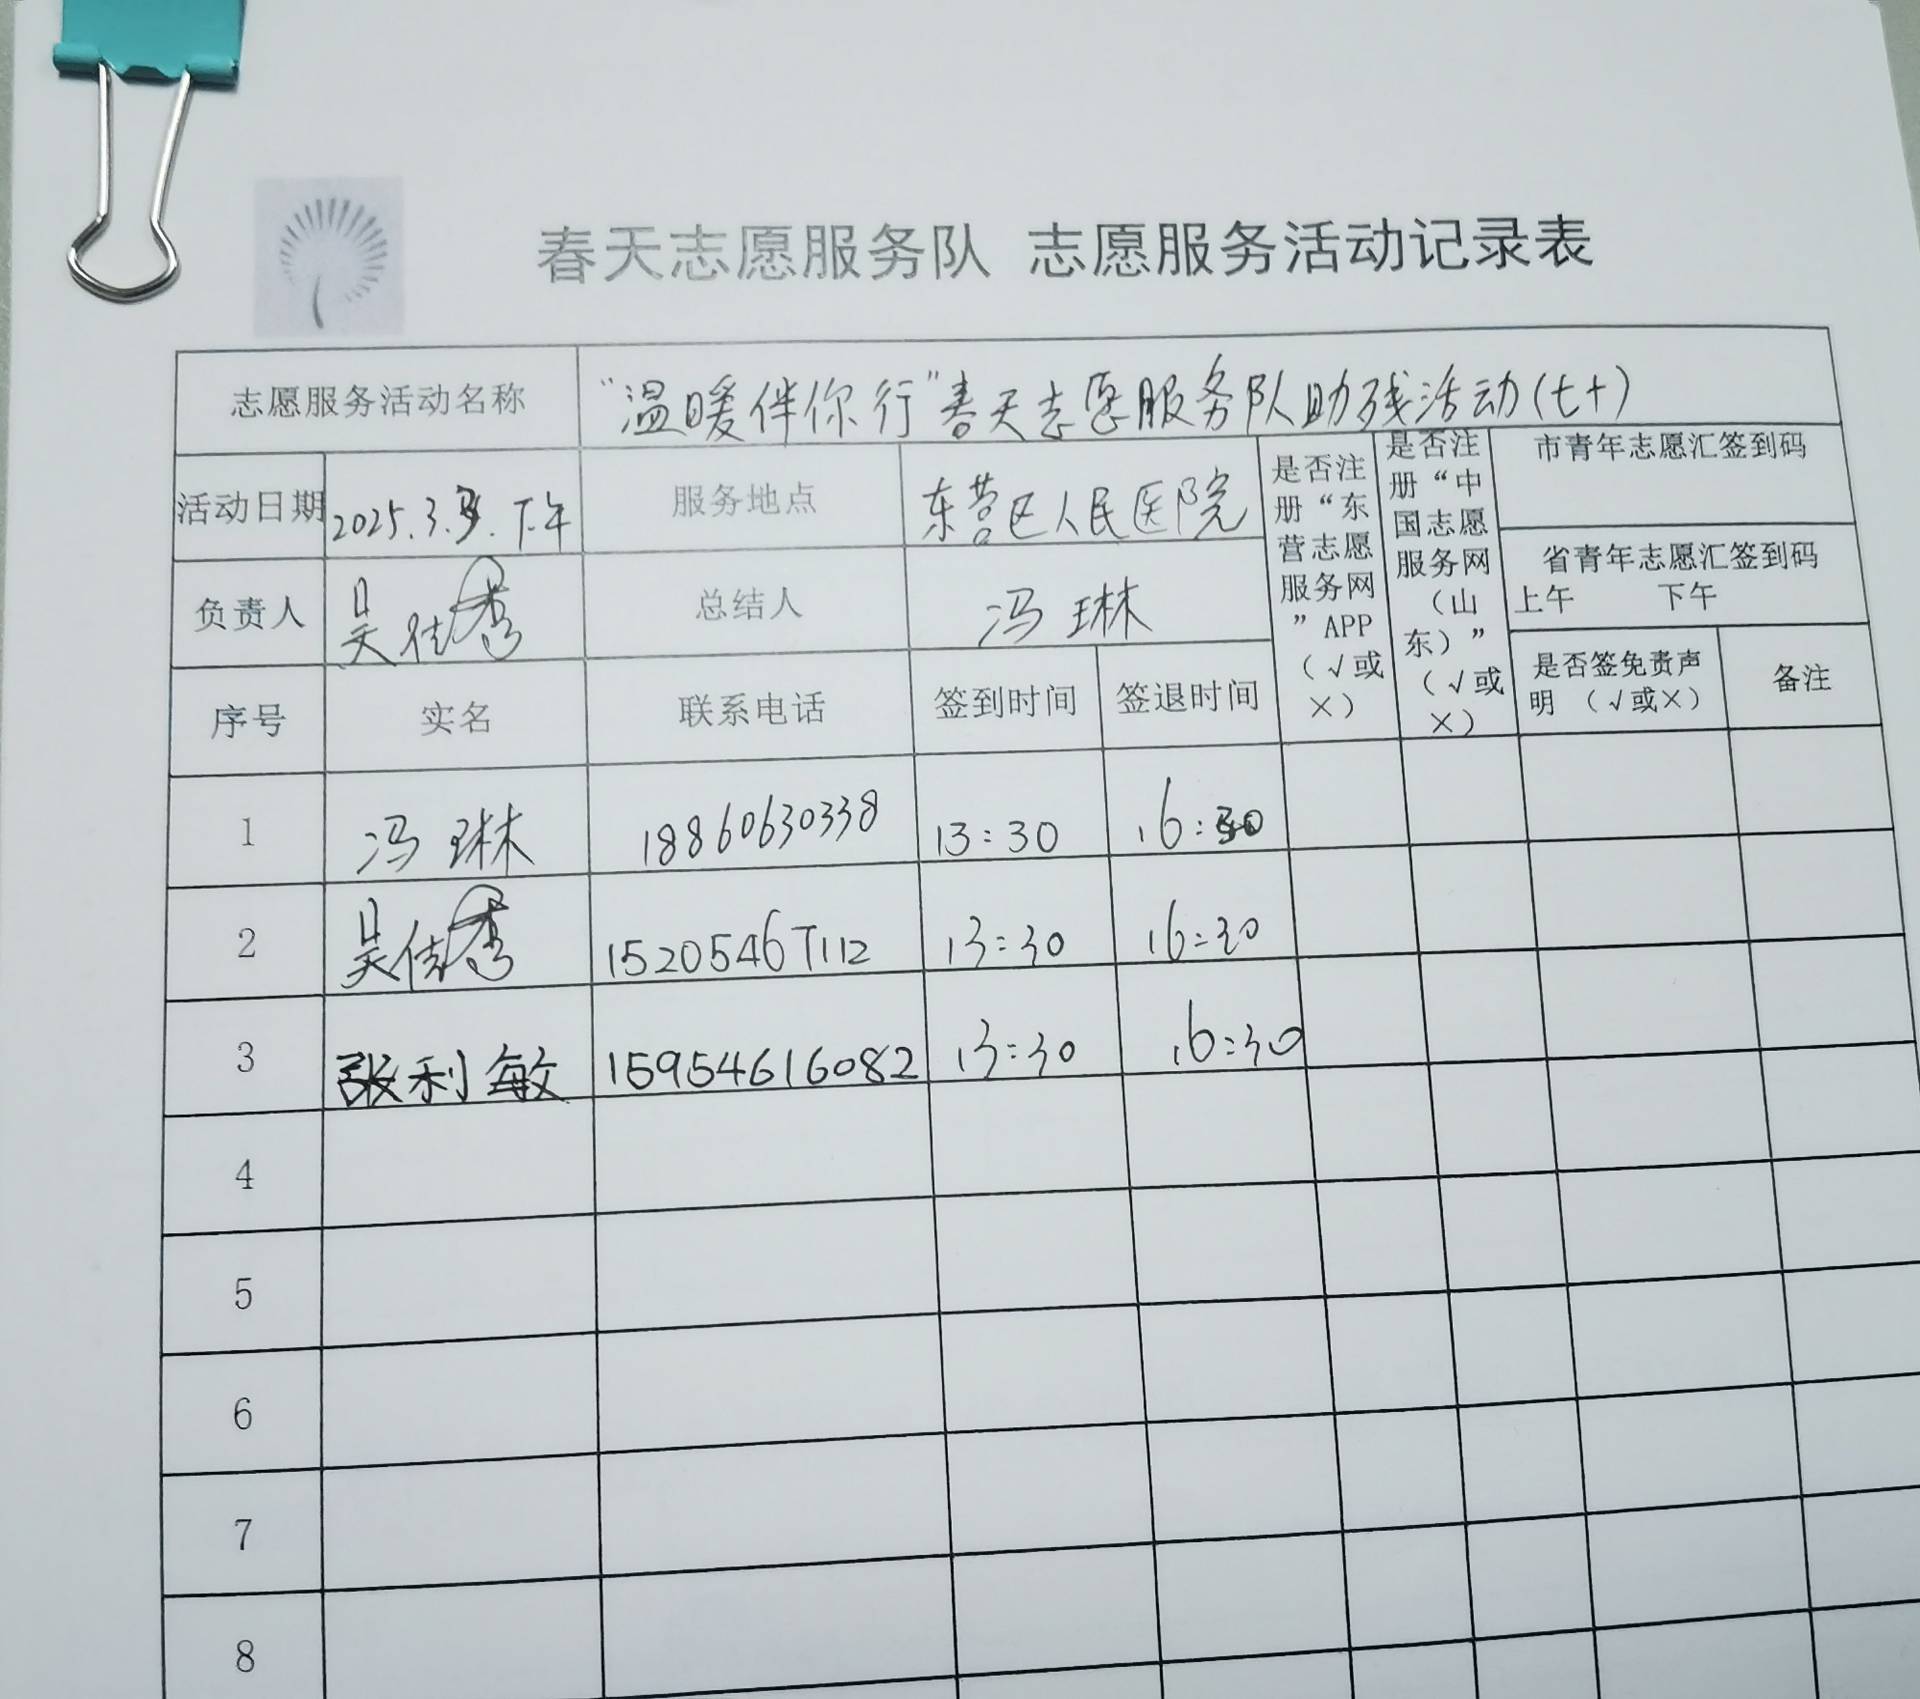 春天志愿服务队 志愿服务活动记录表
志愿服务活动名称 “温暖伴你行”春天志愿服务队助残活动(七十)
活动日期 2025.3. 下午 服务地点 东营区人民医院
是否注册“东营志愿服务网”APP（√或×）
是否注册“中国志愿服务网（山东）”（√或×）
市青年志愿汇签到码
省青年志愿汇签到码
上午 下午
负责人 吴佳秀 总结人 冯琳
序号 实名 联系电话 签到时间 签退时间 是否签免责声明（√或×） 备注
1 冯琳 18860630338 13:30 16:30
2 吴佳秀 15205467112 13:30 16:30
3 张利敏 15954616082 13:30 16:30
4
5
6
7
8